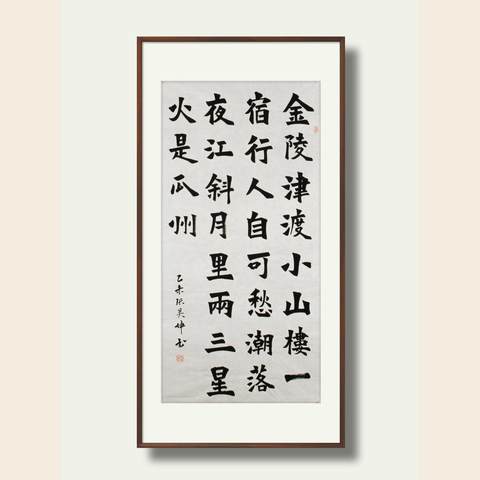 金陵津渡小山樓一
宿行人自可愁潮落
夜江斜月里兩三星
火是瓜州
乙未張美坤书